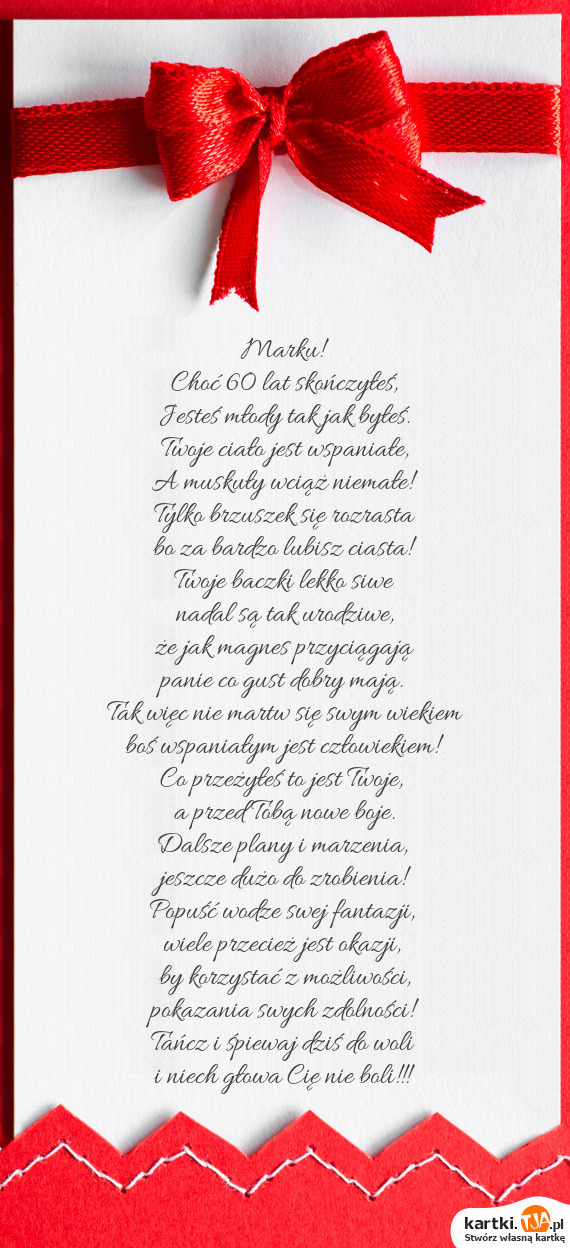 Marku!
Choć 60 lat skończyłeś,
Jesteś młody tak jak byłeś.
Twoje ciało jest wspaniałe,
A muskuły wciąż niemałe!
Tylko brzuszek się rozrasta
bo za bardzo lubisz ciasta!
Twoje baczki lekko siwe
nadal są tak urodziwe,
że jak magnes przyciągają
panie co gust dobry mają.
Tak więc nie martw się swym wiekiem
boś wspaniałym jest człowiekiem!
Co przeżyłeś to jest Twoje,
a przed Tobą nowe boje.
Dalsze plany i marzenia,
jeszcze dużo do zrobienia!
Popuść wodze swej fantazji,
wiele przecież jest okazji,
by korzystać z możliwości,
pokazania swych zdolności!
Tańcz i śpiewaj dziś do woli
i niech głowa Cię nie boli!!!
kartki.TJA.pl
Stwórz własną kartkę